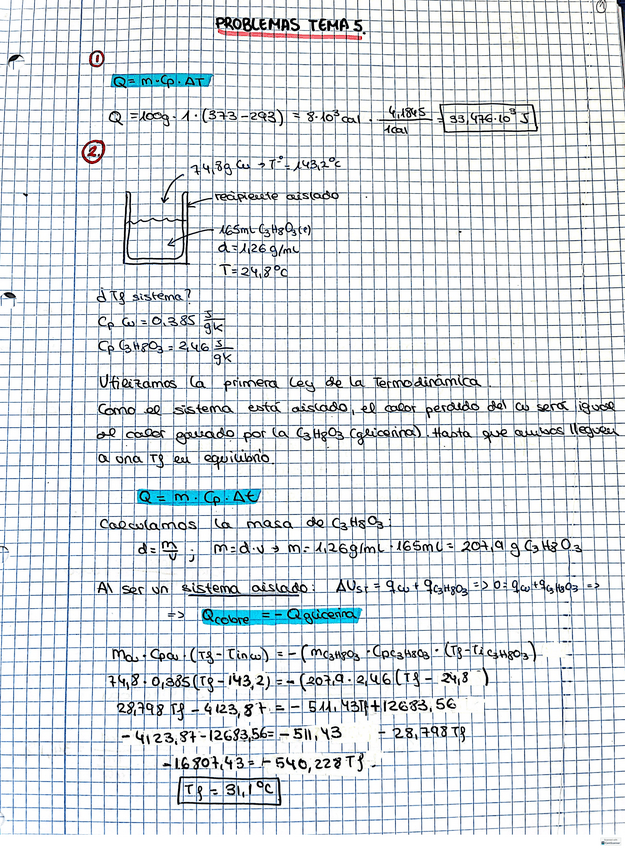 1
PROBLEMAS TEMA 5.
1
Q = m · Cp · ΔT
Q = 100g · 1 · (373 - 293) = 8·10³ cal · 4,1845 / 1 cal = 33,476·10³ J
2.
74,8g Cu → Tº = 143,2ºC
recipiente aislado
165mL C3H8O3(l)
d = 1,26 g/mL
T = 24,8ºC
¿Tf sistema?
Cp Cu = 0,385 J/gK
Cp C3H8O3 = 2,46 J/gK
Utilizamos la primera Ley de la Termodinámica.
Como el sistema está aislado, el calor perdido del Cu será igual
al calor ganado por la C3H8O3 (glicerina). Hasta que ambos lleguen
a una Tf en equilibrio.
Q = m · Cp · Δt
Calculamos la masa de C3H8O3:
d = m/v ; m = d·v → m = 1,26g/mL · 165mL = 207,9 g C3H8O3
Al ser un sistema aislado: ΔUST = qCu + qC3H8O3 => 0 = qCu + qC3H8O3 =>
=> Qcobre = - Qglicerina
mCu · CpCu · (Tf - TinCu) = -(mC3H8O3 · CpC3H8O3 · (Tf - TiC3H8O3)
74,8 · 0,385 (Tf - 143,2) = -(207,9 · 2,46 (Tf - 24,8)
28,798 Tf - 4123,87 = - 511,43Tf + 12683,56
- 4123,87 - 12683,56 = - 511,43 - 28,798 Tf
- 16807,43 = - 540,228 Tf
Tf = 31,1ºC